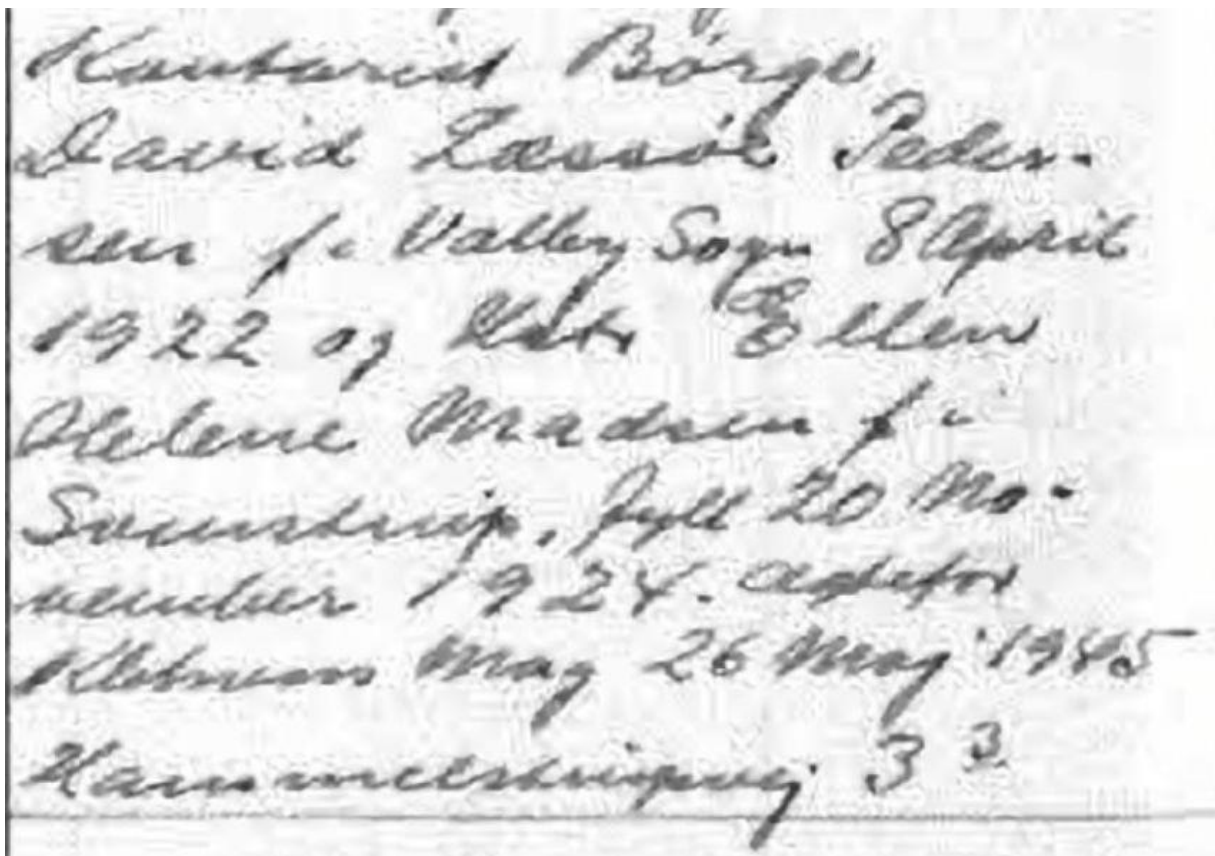 Kontorist Børge
David Læssøe Peder-
sen f. i Valby Sogn 8 April
1922 og Hstr Ellen
Helene Madsen f. i
Svenstrup, Jyll 20 No-
vember 1924.
Kbhvns Mag 26 Maj 1945
Hammelstrupvej 3 3